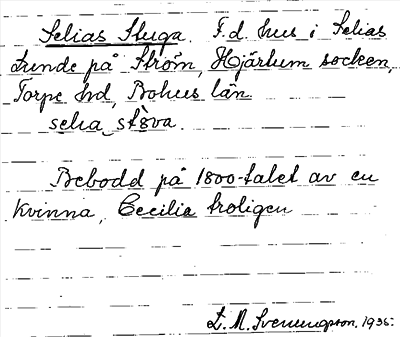 Selias Stuga. F.d. hus i Selias
Lunde på Ström, Hjärtum socken,
Torpe hd, Bohus län.
selia stòva.
Bebodd på 1800-talet av en
kvinna, Cecilia troligen
L. M. Svenungsson. 1935.